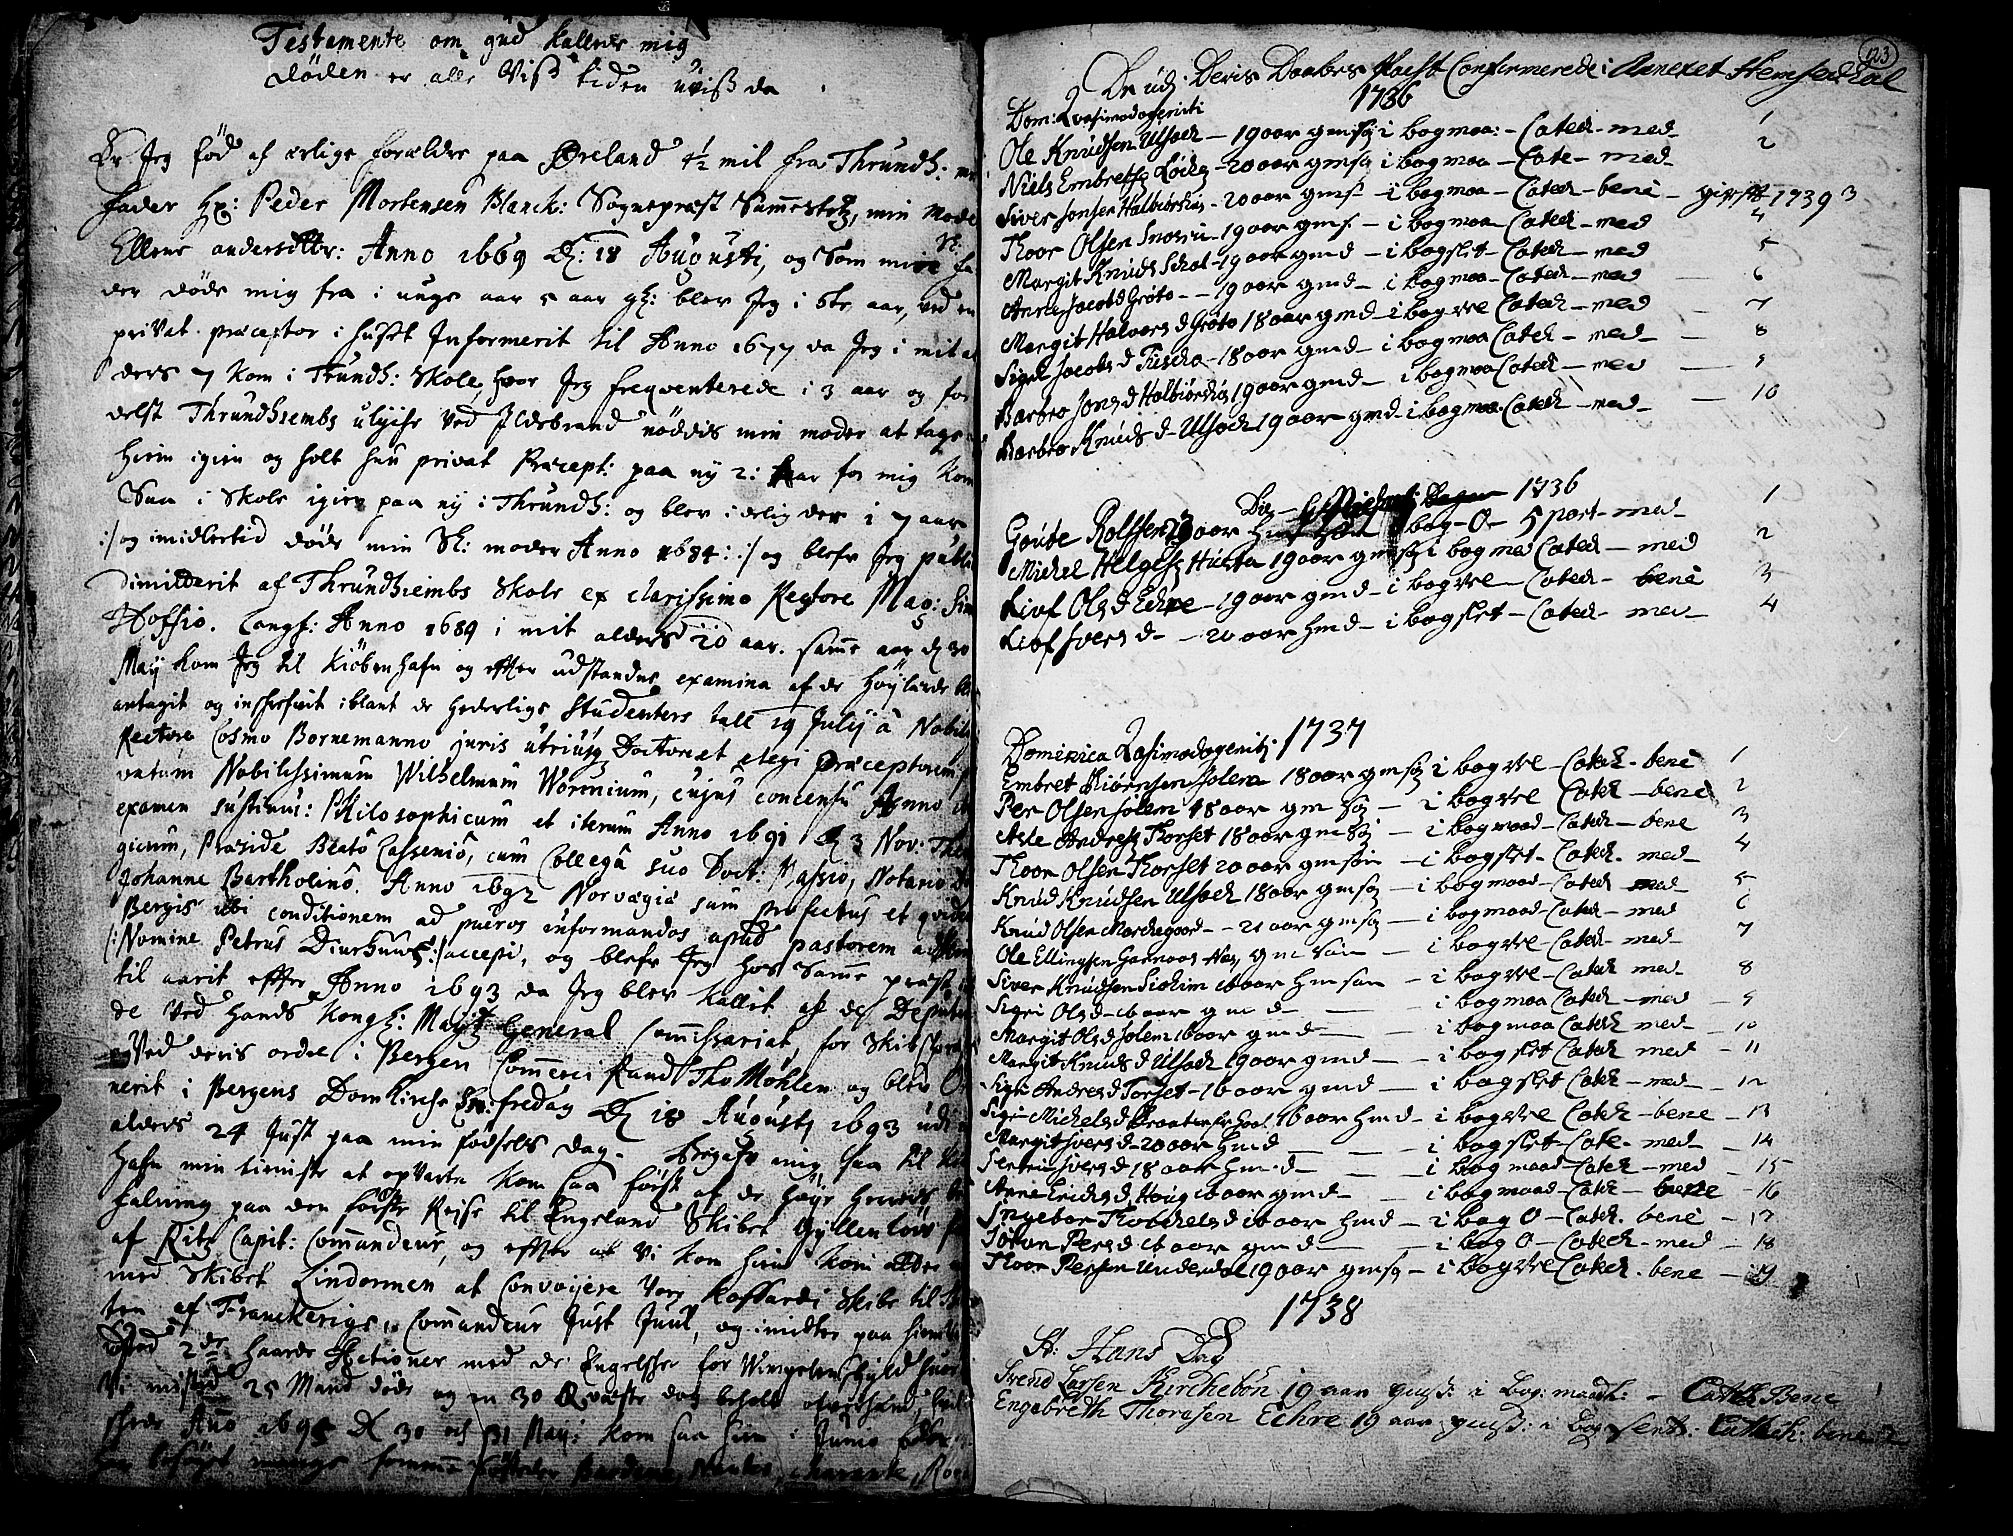 Testamente om gud kalder mig
døden er alle viss tiden uviss da
Er Jeg fød af ærlige forældre paa Øreland ½ mil fra Thrundh: min
fader Hr: Peder Mortensen Blanck: Sognepræst Sammestetz, min mode
Ellene andersdtter: Anno 1669 d: 18 Augusti, og som min Sl: fa
der døde mig fra i unge aar 5 aar gl: blev Jeg i 6te aar, ved en
privat præceptor i huset Informerit til Anno 1677 da Jeg i mit al
ders 7 kom i Trundh: Skole, hvor Jeg frequenterede i 3 aar og for
delst Thrundhiembs ulyche ved Ildebrand nøddis min moder at tage
hiem igien og holt hun privat Præcept: paa ny 2: aar for mig kom
Saa i Skole igien paa ny i Thrundh: og blev idelig der i 7 aar
:/ og imidlertid døde min Sl: moder Anno 1684: :/ og blefv Jeg publi
dimitterit af Thrundhiembs Skole ex clarissimo Rectore Mag: Sim
Hoffio. Anno 1689 i mit alders 20 aar. samme aar d 30
May kom Jeg til Kiøbenhafn og effter udstandne examina af de Høylærde bl
antagit og inschrefvit iblant de hederlige Studenters tall 19 Julij a Nobili
Rectore Cosmo Bornemanno juris utriusq Doctore et elegi præceptorem p
vatum Nobilissimum Wilhelmum Wormium, cujus concensu Anno
examen sustinui: Philosophicum et iterum Anno 1691 d 3 Nov: Theo
gicum, Præside Beato Lassenio, cum Collega suo Doct: Massio, Notario D
Johanne Bartholino. Anno 1692 Norvegia sum profectus et quidem
Bergis ibi conditionem ad pueros informandos apud pastorem
/:Nomine Petrus :/ accepi, og blefv Jeg hos Samme præst
til aarit effter Anno 1693 da Jeg blev kallit af de Deputer
de ved Hands Kongl: Mayt General Commissariat, for Skibs
og ved deris ordre i Bergen Commerci Raad Tho Møhlen og blev Or
nerit i Bergens Domkirche fredag d 18 Augusti 1693 udi
alders 24 Just paa min fødsels dag. begaf mig saa til Kiø
hafn min tieniste at opvarte kom saa først af de høye Herrers be
falning paa den første Reyse til Engeland Skibet Gyllenløw f
af Ritz Capit: Commandeur, og effter at Vi kom hiem kom
med Skibet Lindormen at Convoyere Vore Koffardi Skibe til
ten af Franckerige, Commandeur Just Juul, og imidler paa hiem
ved 2de haarde Actioner med de Engelsche for Wimpelens skyld hvor
Vi misted 25 Mand døde og en 30 Qvæste dog beholt
schede Ano 1695 d 30 och 31 May: kom saa hiem i Junio
har besøgt mange fremmede stæder Bordeaux, Nantes, Charante, Ro
123
De udj Deris Daabes Pact Confirmerede i Annexet Hemsedhal
1736
Dom: Qvasimodogeniti
Ole Knudsen Ulsach - 19 aar gmsøn i bog maa: - Catech - med 1
Niels Embretss Løken - 20 aar gmsøn i bog maa - Cate - med 2
Siver Jonsen Halbiørhus - 20 aar gms - i bog maa - Catech - bene - gift 1739 3
Thoor Olsen Snoare - 19 aar gms - i bog maa - Catech - med 4
Margit Knuds Schat - 19 aar gmd - i bog slet - Catech - med 5
Anne Jacobsd Grøto - - 19 aar gmd - i bog maa - Catech - med 6
Margit Halvors d Grøto 18 aar gmd - i bog vel Catech - med 7
Sigri Jacobs d Fischa - 18 aar gmd - i bog maa Catech - med 8
Barbro Jons d Halbiørhus 19 aar gmd - i bog maa Catech - med 9
Barbro Knuds d Ulsach 19 aar gmd - i bog maa Catech - med 10
Die Michaeli 1736
Goute Rolfsen 23 aar i bog - O - 5 part - med 1
Michel Helgess Huseta 19 aar gmsøn i bog med Catech - med 2
Liof Ols d Echre - 19 aar gmd - i bog vel - Catech - bene 3
Liof Ivers d - 20 aar hmd - i bog slet - Catech - med 4
Dominica Qvasimodogeniti 1737
Embret Biørnsen Jolem 18 aar gmsøn i bog vel - Catech - bene 1
Per Olsen Jolem 18 aar gm søn - i bog vel Catech - bene 2
Asle Andress Thorset 18 aar gm søn - i bog maad - Catech - bene 3
Thoor Olsen Thorset 20 aar gmsøn - i bog slet - Catech - med 4
Knud Knudsen Ulsach 18 aar gmsøn - i bog maad - Catech - med 5
Knud Olsen Marchegaard - - 21 aar gmsøn - i bog maad - Catech - med 6
Ole Ellingsen gm søn - i bog vel - Catech - med 7
Siver Knudsen 16 aar hm søn - i bog vel - Catech med 8
Sigri Ols d - 16 aar gm d - i bog maa Catech - med 9
Margit Ols d Jolem 16 aar gm d - i bog maa Catech - med 10
Margit Knuds d Ulsach 19 aar gmd - i bog slet Catech - med 11
Sigri Andres d Torset - 16 aar gmd - i bog slet Catech - med 12
Sigri Michels d 16 aar hmd - i bog vel Catech - bene 13
Margit Ivers d - 20 aar hmd - i bog slet - Cate - med 14
Ivers d 18 aar hm d - i bog maad Catech - med 15
Anne Erichs d Houg 16 aar gmd - i bog maad - Catech - bene 16
Ingebor Thorchels d 16 aar hmd - i bog O - Catech - bene 17
Joran Pers d 16 aar gmd - i bog O - Catech - med 18
Thoor Persen Underdal 19 aar gmsøn - i bog vel Catech - bene 19
1738
St: Hans Dag
Svend Larsen Kirchebøn 19 aar gmsøn: i bog: maadel: - Catech Bene 1
Engebreth Thoresen Echre 19 aar gmsøn: i bog : Catech: bene 2